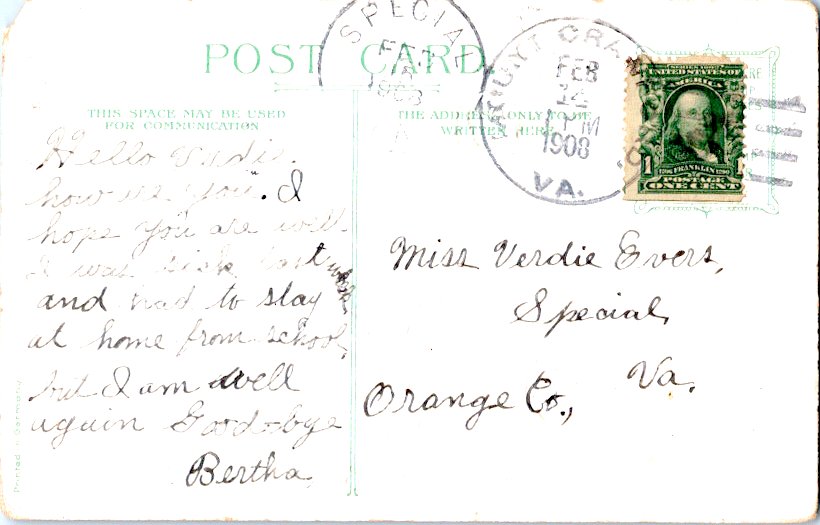 POST CARD.
SPECIAL
FEB
15
1908
VA
MOUNT CRAWFORD
FEB
14
1 PM
1908
VA.
SERIES 1902
UNITED STATES OF
AMERICA
1 1
1706 FRANKLIN 1790
POSTAGE
ONE CENT
THIS SPACE MAY BE USED
FOR COMMUNICATION
THE ADDRESS ONLY TO BE
WRITTEN HERE
Hello Verdie.
how are you. I
hope you are well.
I was sick last week
and had to stay
at home from school,
but I am well
again Good-bye
Bertha.
Miss Verdie Evers,
Special,
Va.
Orange Co.,
Printed in Germany